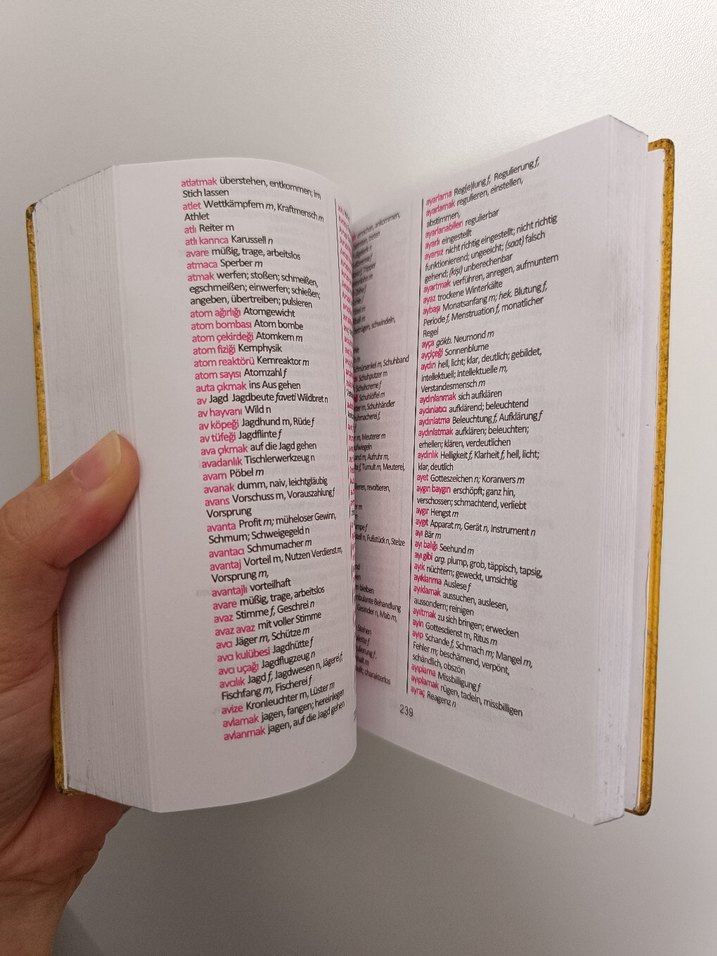 atlatmak überstehen, entkommen; im
Stich lassen
atlet Wettkämpfern m, Kraftmensch m
Athlet
atlı Reiter m
atlı karınca Karussell n
avare müßig, trage, arbeitslos
atmaca Sperber m
atmak werfen; stoßen; schmeißen,
egschmeißen; einwerfen; schießer;
angeben, übertreiben; pulsieren
atom ağırlığı Atomgewicht
atom bombası Atom bombe
atom çekirdeği Atomkern m
atom fiziği Kernphysik
atom reaktörü Kernreaktor m
atom sayısı Atomzahl f
auta çıkmak ins Aus gehen
av Jagd Jagdbeute f aveti Wildbret n
av hayvanı Wild n
av köpeği Jagdhund m, Rüde f
av tüfeği Jagdflinte f
ava çıkmak auf die Jagd gehen
avadanlık Tischlerwerkzeug n
avam Pöbel m
avanak dumm, naiv, leichtgläubig
avans Vorschuss m, Vorauszahlung f
Vorsprung
avanta Profit m; müheloser Gewinn,
Schmum; Schweigegeld n
avantacı Schmumacher m
avantaj Vorteil m, Nutzen Verdienst m,
Vorsprung m,
avantajlı vorteilhaft
avare müßig, trage, arbeitslos
avaz Stimme f, Geschrei n
avaz avaz mit voller Stimme
avcı Jäger m, Schütze m
avcı kulübesi Jagdhütte f
avcı uçağı Jagdflugzeug n
avcılık Jagd f, Jagdwesen n, Jägerei f,
Fischfang m, Fischerei f
avize Kronleuchter m, Lüster m
avlamak jagen, fangen; hereinlegen
avlanmak jagen, auf die Jagd gehen
Schuhband
Schuhputzer m
Schuhcreme f
Schuhlöffel m
Schuhhändler
Meuterer m
Aufruhr m,
f Tumult m, Meuterei,
revoltieren,
Fußstück n, Stelze
bleiben
Behandlung
n Mab m,
charakterlos
ayarlama Reg(e)lung f, Regulierung f,
ayarlamak regulieren, einstellen,
abstimmen,
ayarlanabilen regulierbar
ayarlı eingestellt
ayarsız nicht richtig eingestellt; nicht richtig
funktionierend; ungeeicht; (saat) falsch
gehend; (kişi) unberechenbar
ayartmak verführen, anregen, aufmuntern
ayaz trockene Winterkälte
aybaşı Monatsanfang m; hek. Blutung f,
Periode f, Menstruation f, monatlicher
Regel
ayça gökb. Neumond m
ayçiçeği Sonnenblume
aydın hell, licht; klar, deutlich; gebildet,
intellektuell; intellektuelle m,
Verstandesmensch m
aydınlanmak sich aufklären
aydınlatıcı aufklärend; beleuchtend
aydınlatma Beleuchtung f, Aufklärung f
aydınlatmak aufklären; beleuchten;
erhellen; klären, verdeutlichen
aydınlık Helligkeit f, Klarheit f, hell, licht;
klar, deutlich
ayet Gotteszeichen n; Koranvers m
aygın baygın erschöpft; ganz hin,
verschosser; schmachtend, verliebt
aygır Hengst m
aygıt Apparat m, Gerät n, Instrument n
ayı Bär m
ayı balığı Seehund m
ayı gibi arg. plump, grob, täppisch, tapsig,
ayık nüchtern; geweckt, umsichtig
ayıklanma Auslese f
ayıklamak aussuchen, auslesen,
aussondern; reinigen
ayıltmak zu sich bringen; erwecken
ayin Gottesdienst m, Ritus m
ayıp Schande f, Schmach m; Mangel m,
Fehler m; beschämend, verpönt,
schändlich, obszön
ayıplama Missbilligung f
ayıplamak rügen, tadeln, missbilligen
ayıraç Reagenz n
239